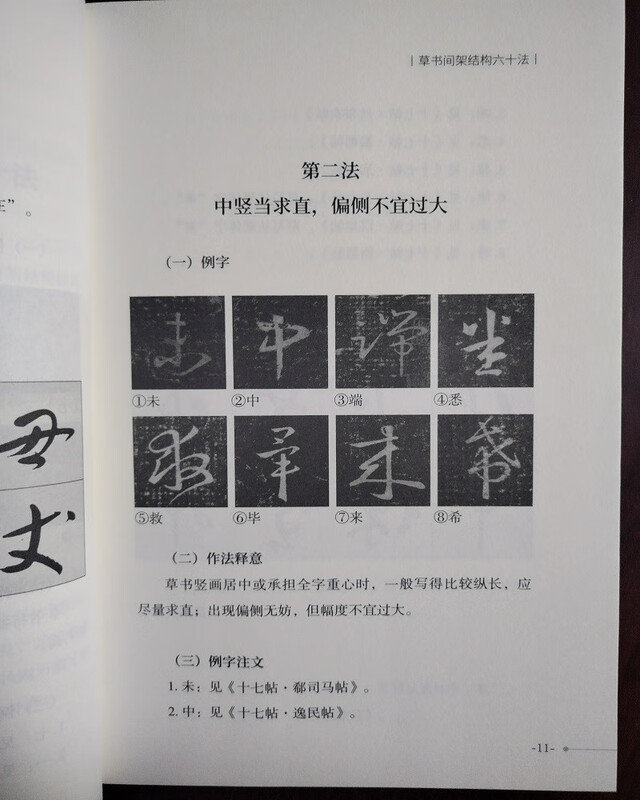 草书间架结构六十法
第二法
中竖当求直，偏侧不宜过大
（一）例字
①未
②中
③端
④悉
⑤救
⑥毕
⑦来
⑧希
（二）作法释意
草书竖画居中或承担全字重心时，一般写得比较纵长，应
尽量求直；出现偏侧无妨，但幅度不宜过大。
（三）例字注文
1. 未：见《十七帖·郗司马帖》。
2. 中：见《十七帖·逸民帖》。
-11-